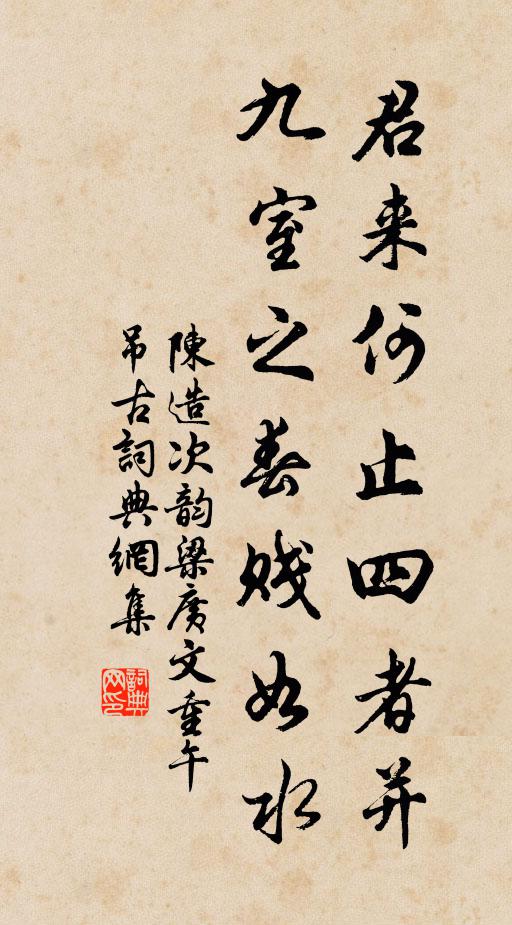 君来何止四者并
九室之春贱如水
陳造次韵梁廣文重午
吊古詞典網集
詞典网印